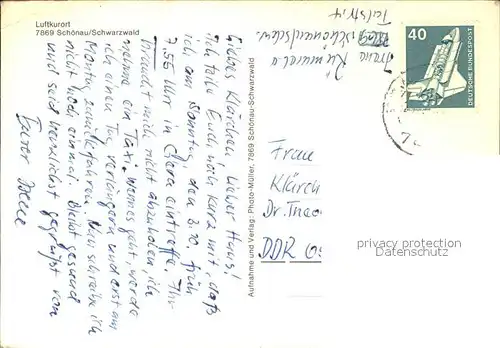 Luftkurort
7869 Schönau/Schwarzwald
Liebes Klärchen, lieber Hans!
ich teile Euch noch kurz mit, daß
ich am Sonntag, den 3.10. früh
7.55 Uhr in Gera eintreffe. Ihr
braucht mich nicht abzuholen, ich
nehme ein Taxi. Wenn es geht, werde
ich einen Tag verlängern und erst am
Montag zurückfahren. Nun schreibe ich
nicht noch einmal. Bleibt gesund
und seid herzlichst gegrüßt von
Eurer
Aufnahme und Verlag: Photo-Müller, 7869 Schönau/Schwarzwald
40
DEUTSCHE BUNDESPOST
Frau
Klärch
Dr. Theo
DDR
privacy protection
Datenschutz